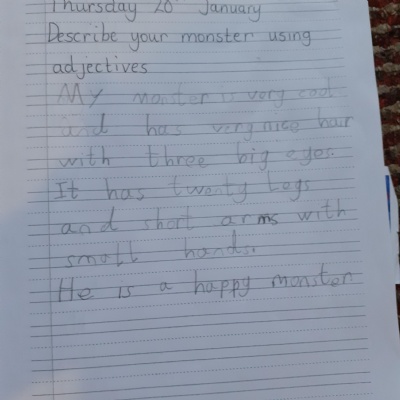 Thursday 20 January
Describe your monster using
adjectives
My monster is very cool
and has very nice hair
with three big eyes.
It has twenty legs
and short arms with
small hands.
He is a happy monster